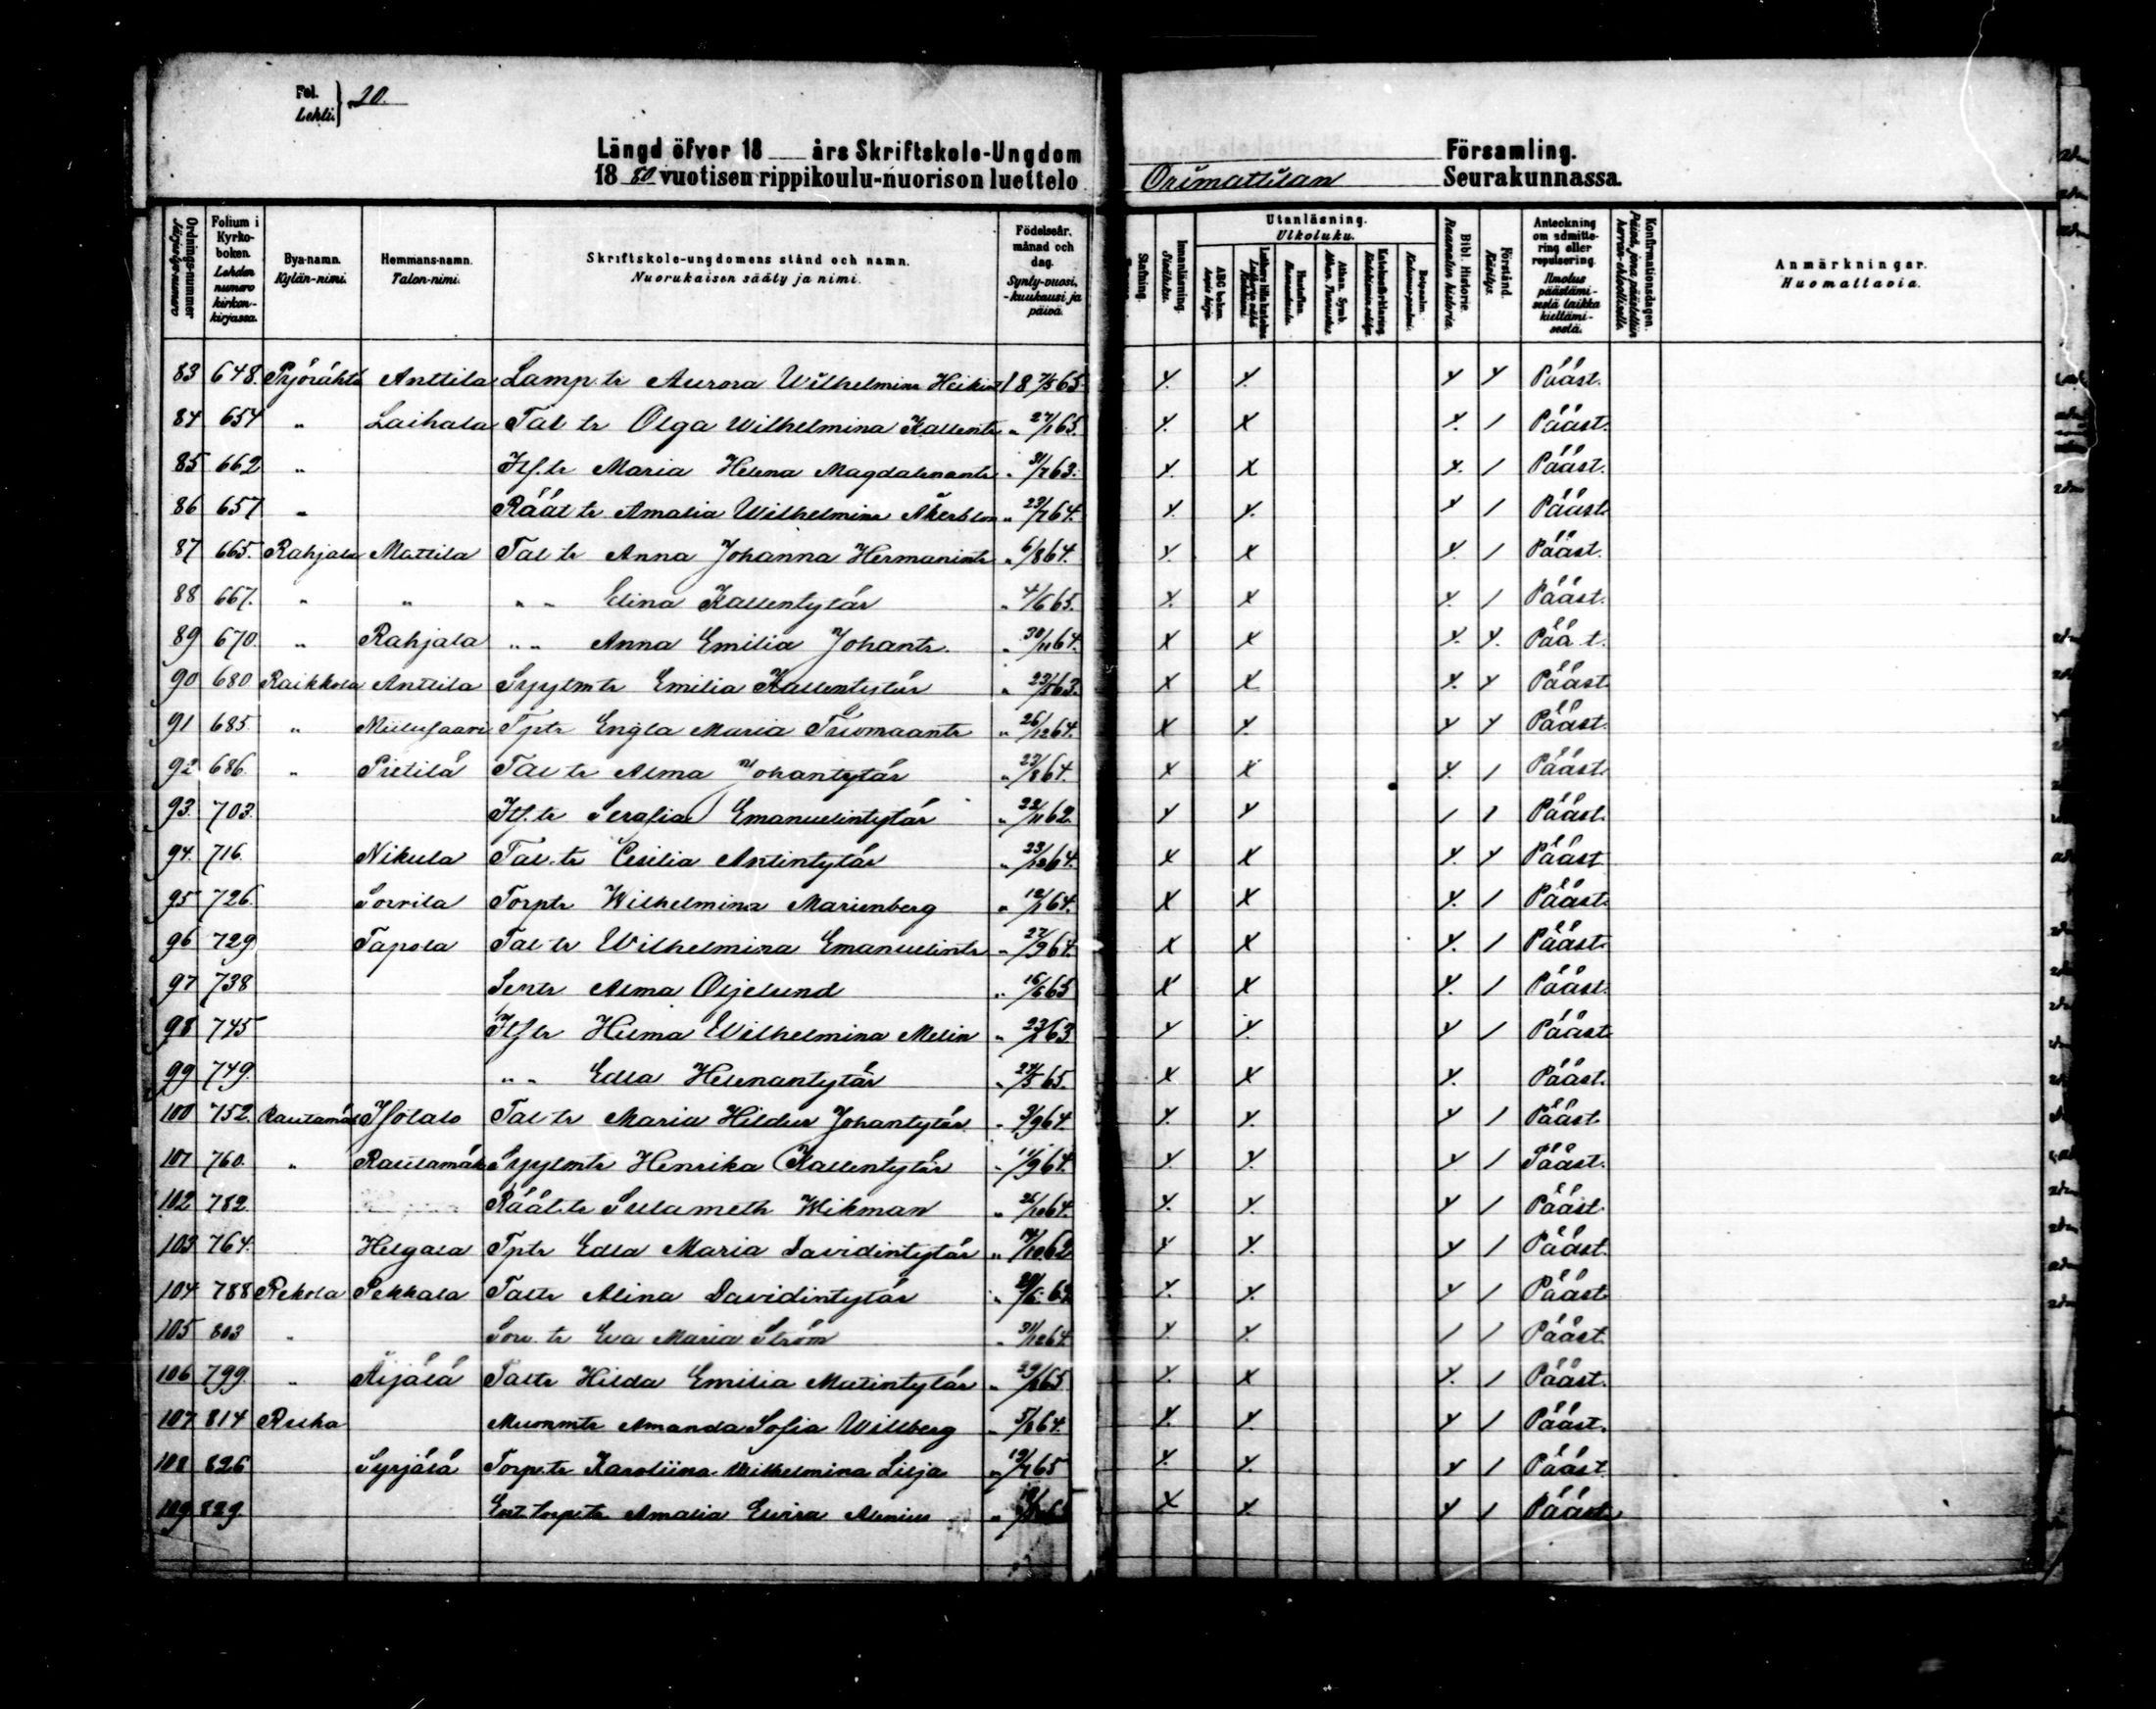 Fol. Lehti. } 20.
Längd öfver 18 ___ års Skriftskole-Ungdom Församling.
18 80 vuotisen rippikoulu-nuorison luettelo Orimattilan Seurakunnassa.
Ordnings-nummer Järjestys-numero | Folium i Kyrko-boken. Lehden numero kirkon-kirjassa. | Bya-namn. Kylän-nimi. | Hemmans-namn. Talon-nimi. | Skriftskole-ungdomens stånd och namn. Nuorukaisen sääty ja nimi. | Födelseår, månad och dag. Synty-vuosi, -kuukausi ja päivä. | Stafning. | Innanläsning. Sisäluku. | Utanläsning. Ulkoluku. | ABC boken. | Bibl. Historie. Raamatun historia. | Förstånd. Käsitys. | Anteckning om admittering eller repulsering. Ilmotus päästämisestä taikka kieltämisestä. | Konfirmationsdagen. | Anmärkningar. Huomattavia.
83 648. Anttila Lamp. tr Aurora Wilhelmina 18 7/5 65. Y. Y. Y Y Pääst.
84 654 " Laihala Tal tr Olga Wilhelmina Kallentr " 27/1 65. Y. X Y. 1 Pääst.
85 662 " Itf. tr Maria Helena Magdalenantr " 31/7 63. Y X Y. 1 Pääst.
86 657 " Räät tr Amalia Wilhelmina Åkerblom " 23/7 64. Y. Y. Y 1 Pääst
87 665. Rahjala Mattila Tal tr Anna Johanna Hermanintr " 6/8 64. Y X Y. 1 Pääst.
88 667. " " " " Elina Kallentytär " 4/6 65. X X Y. 1 Pääst.
89 670. " Rahjala " " Anna Emilia Johantr. " 30/11 64. X X Y. Y. Pää t.
90 680 Raikkola Anttila Syylmtr Emilia Kallentytär " 63. X X Y. Y Pääst
91 685. " Tptr Engla Maria Tuomaantr " 26/12 64. X Y. Y Y Pääst.
92 686. " Pietilä Tal tr Alma Johantytär " 23/8 64. X X Y. 1 Pääst
93. 703. Itf. tr Serafia Emanuelintytär " 22/11 62. Y Y 1 1 Pääst
94. 716. Nikula Tal. tr Cesilia Antintytär " 23/12 64. X X Y. Y Pääst
95 726. Sorvila Torptr Wilhelmina Marienberg " 12/1 64. X X Y. 1 Pääst
96 729 Tapola Tal tr Wilhelmina Emanuelintr " 27/9 64. X X Y. 1 Pääst
97 738 Alma Oljelund " 16/6 65 X X Y. 1 Pääst
98 745 Itf tr Hilma Wilhelmina Melin " 63 Y Y. Y 1 Pääst
99 749. " " Edla Helenantytär " 24/5 65. X X Y. Pääst.
100 752. Isotalo Tal tr Maria Hildur Johantytär " 3/9 64. Y. Y. Y 1 Pääst
101 760. " Rautamäk Syylmtr Henrika Kallentytär " 11/9 64. Y. Y. Y 1 Pääst.
102 782 Räät. tr Sulameth Wikman " 26/10 64. Y. Y. Y 1 Pääst.
103 764. Helgala Tptr Edla Maria Davidintytär " 14/10 62 Y Y. Y 1 Pääst
104 788 Rekola Pekkala Taltr Alina Davidintytär " Y. Y. Y 1 Pääst
105 803 " Eva Maria Ström " 31/12 64. Y Y. 1 1 Pääst.
106 799. " Äijälä Taltr Hilda Emilia Matintytär " 65 Y. X Y. 1 Pääst.
107 814 Ruha Muonmtr Amanda Sofia Willberg " 64. Y. Y. Y 1 Pääst.
108 826 Syrjälä Torp. tr Karoliina Wilhelmina Lilja " 19/7 65 Y. Y. Y 1 Pääst
109 829. Ent. torp. tr Amalia Elvira Alenius " X Y. Y 1 Pääst